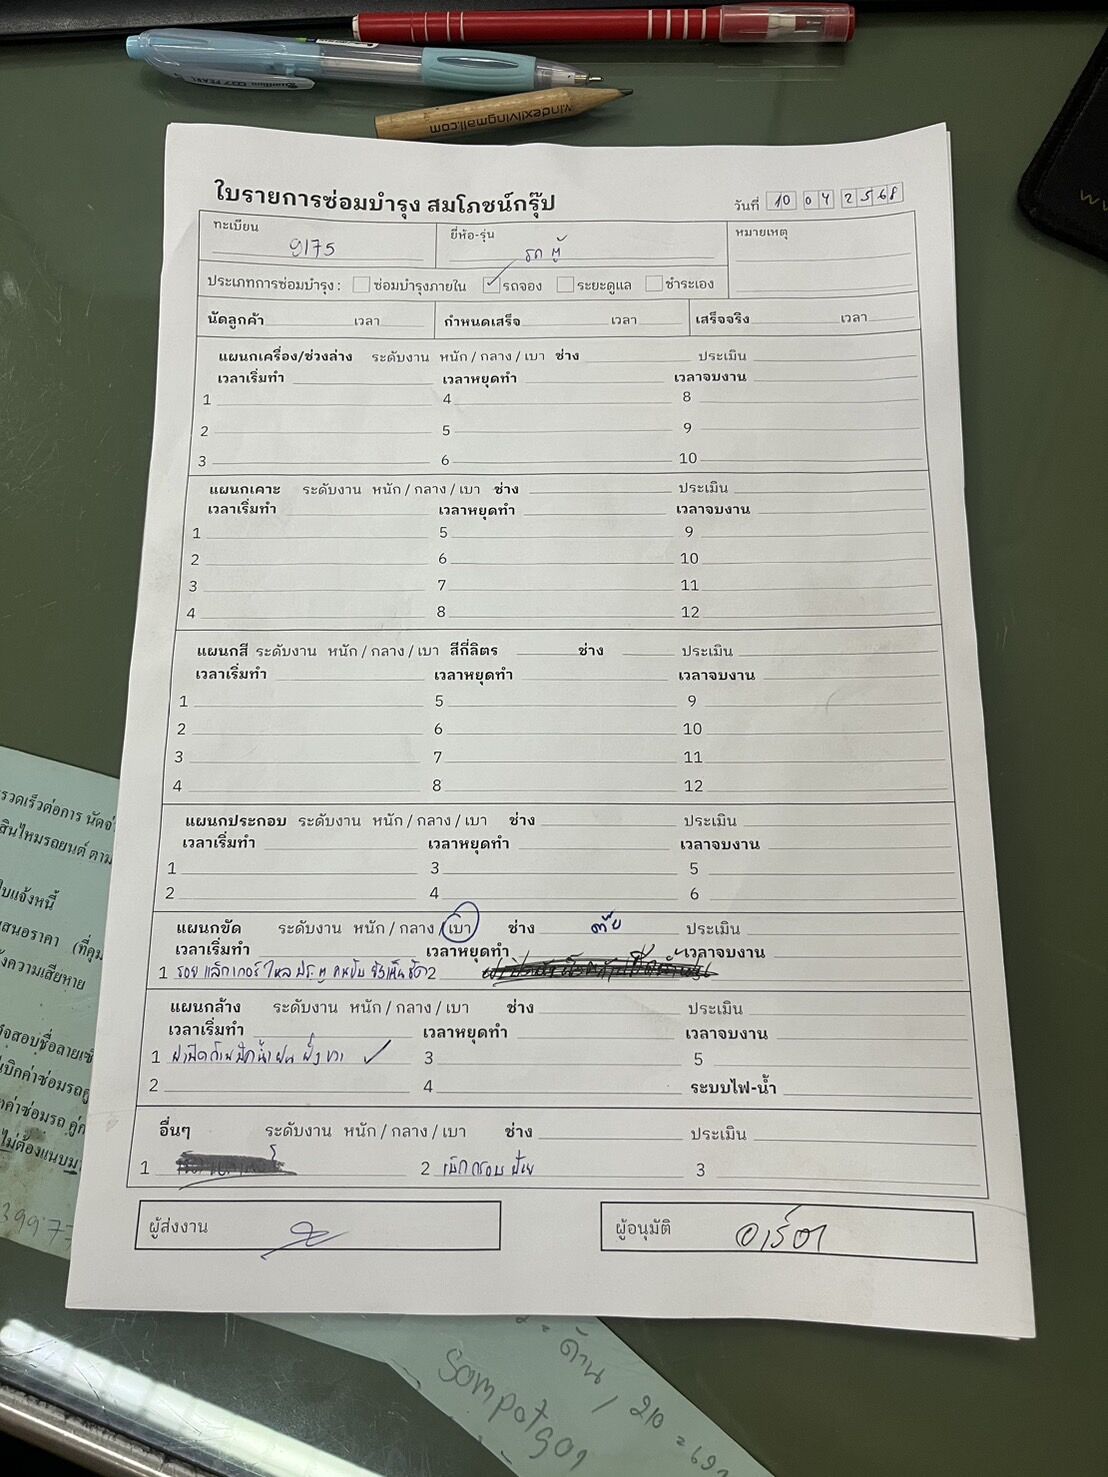 v.indexlivingmall.com
ใบรายการซ่อมบำรุง สมโภชน์กรุ๊ป
วันที่ 10 04 2568
ทะเบียน 9175 ยี่ห้อ-รุ่น รถตู้ หมายเหตุ
ประเภทการซ่อมบำรุง : ซ่อมบำรุงภายใน รถจอง ระยะดูแล ชำระเอง
นัดลูกค้า เวลา กำหนดเสร็จ เวลา เสร็จจริง เวลา
แผนกเครื่อง/ช่วงล่าง ระดับงาน หนัก / กลาง / เบา ช่าง ประเมิน
เวลาเริ่มทำ เวลาหยุดทำ เวลาจบงาน
1 4 8
2 5 9
3 6 10
แผนกเคาะ ระดับงาน หนัก / กลาง / เบา ช่าง ประเมิน
เวลาเริ่มทำ เวลาหยุดทำ เวลาจบงาน
1 5 9
2 6 10
3 7 11
4 8 12
แผนกสี ระดับงาน หนัก / กลาง / เบา สีกี่ลิตร ช่าง ประเมิน
เวลาเริ่มทำ เวลาหยุดทำ เวลาจบงาน
1 5 9
2 6 10
3 7 11
4 8 12
แผนกประกอบ ระดับงาน หนัก / กลาง / เบา ช่าง ประเมิน
เวลาเริ่มทำ เวลาหยุดทำ เวลาจบงาน
1 3 5
2 4 6
แผนกขัด ระดับงาน หนัก / กลาง / เบา ช่าง ประเมิน
เวลาเริ่มทำ เวลาหยุดทำ เวลาจบงาน
1 รอยแล็กเกอร์ไหล ประตู คนขับ 2
แผนกล้าง ระดับงาน หนัก / กลาง / เบา ช่าง ประเมิน
เวลาเริ่มทำ เวลาหยุดทำ เวลาจบงาน
1 ฝาปิด ปัดน้ำฝน ฝั่งขวา ✓ 3 5
2 4 ระบบไฟ-น้ำ
อื่นๆ ระดับงาน หนัก / กลาง / เบา ช่าง ประเมิน
1 2 เบิกกรอบป้าย 3
ผู้ส่งงาน ผู้อนุมัติ
รวดเร็วต่อการ นัดจ่
สินไหมรถยนต์ ตาม
ใบแจ้งหนี้
เสนอราคา (ที่คุม
ังความเสียหาย
จสอบชื่อลายเซ็
เบิกค่าซ่อมรถคู่
ค่าซ่อมรถ คู่ก
ไม่ต้องแนบม
3997
ด้าน / 210 =
Sompotgor